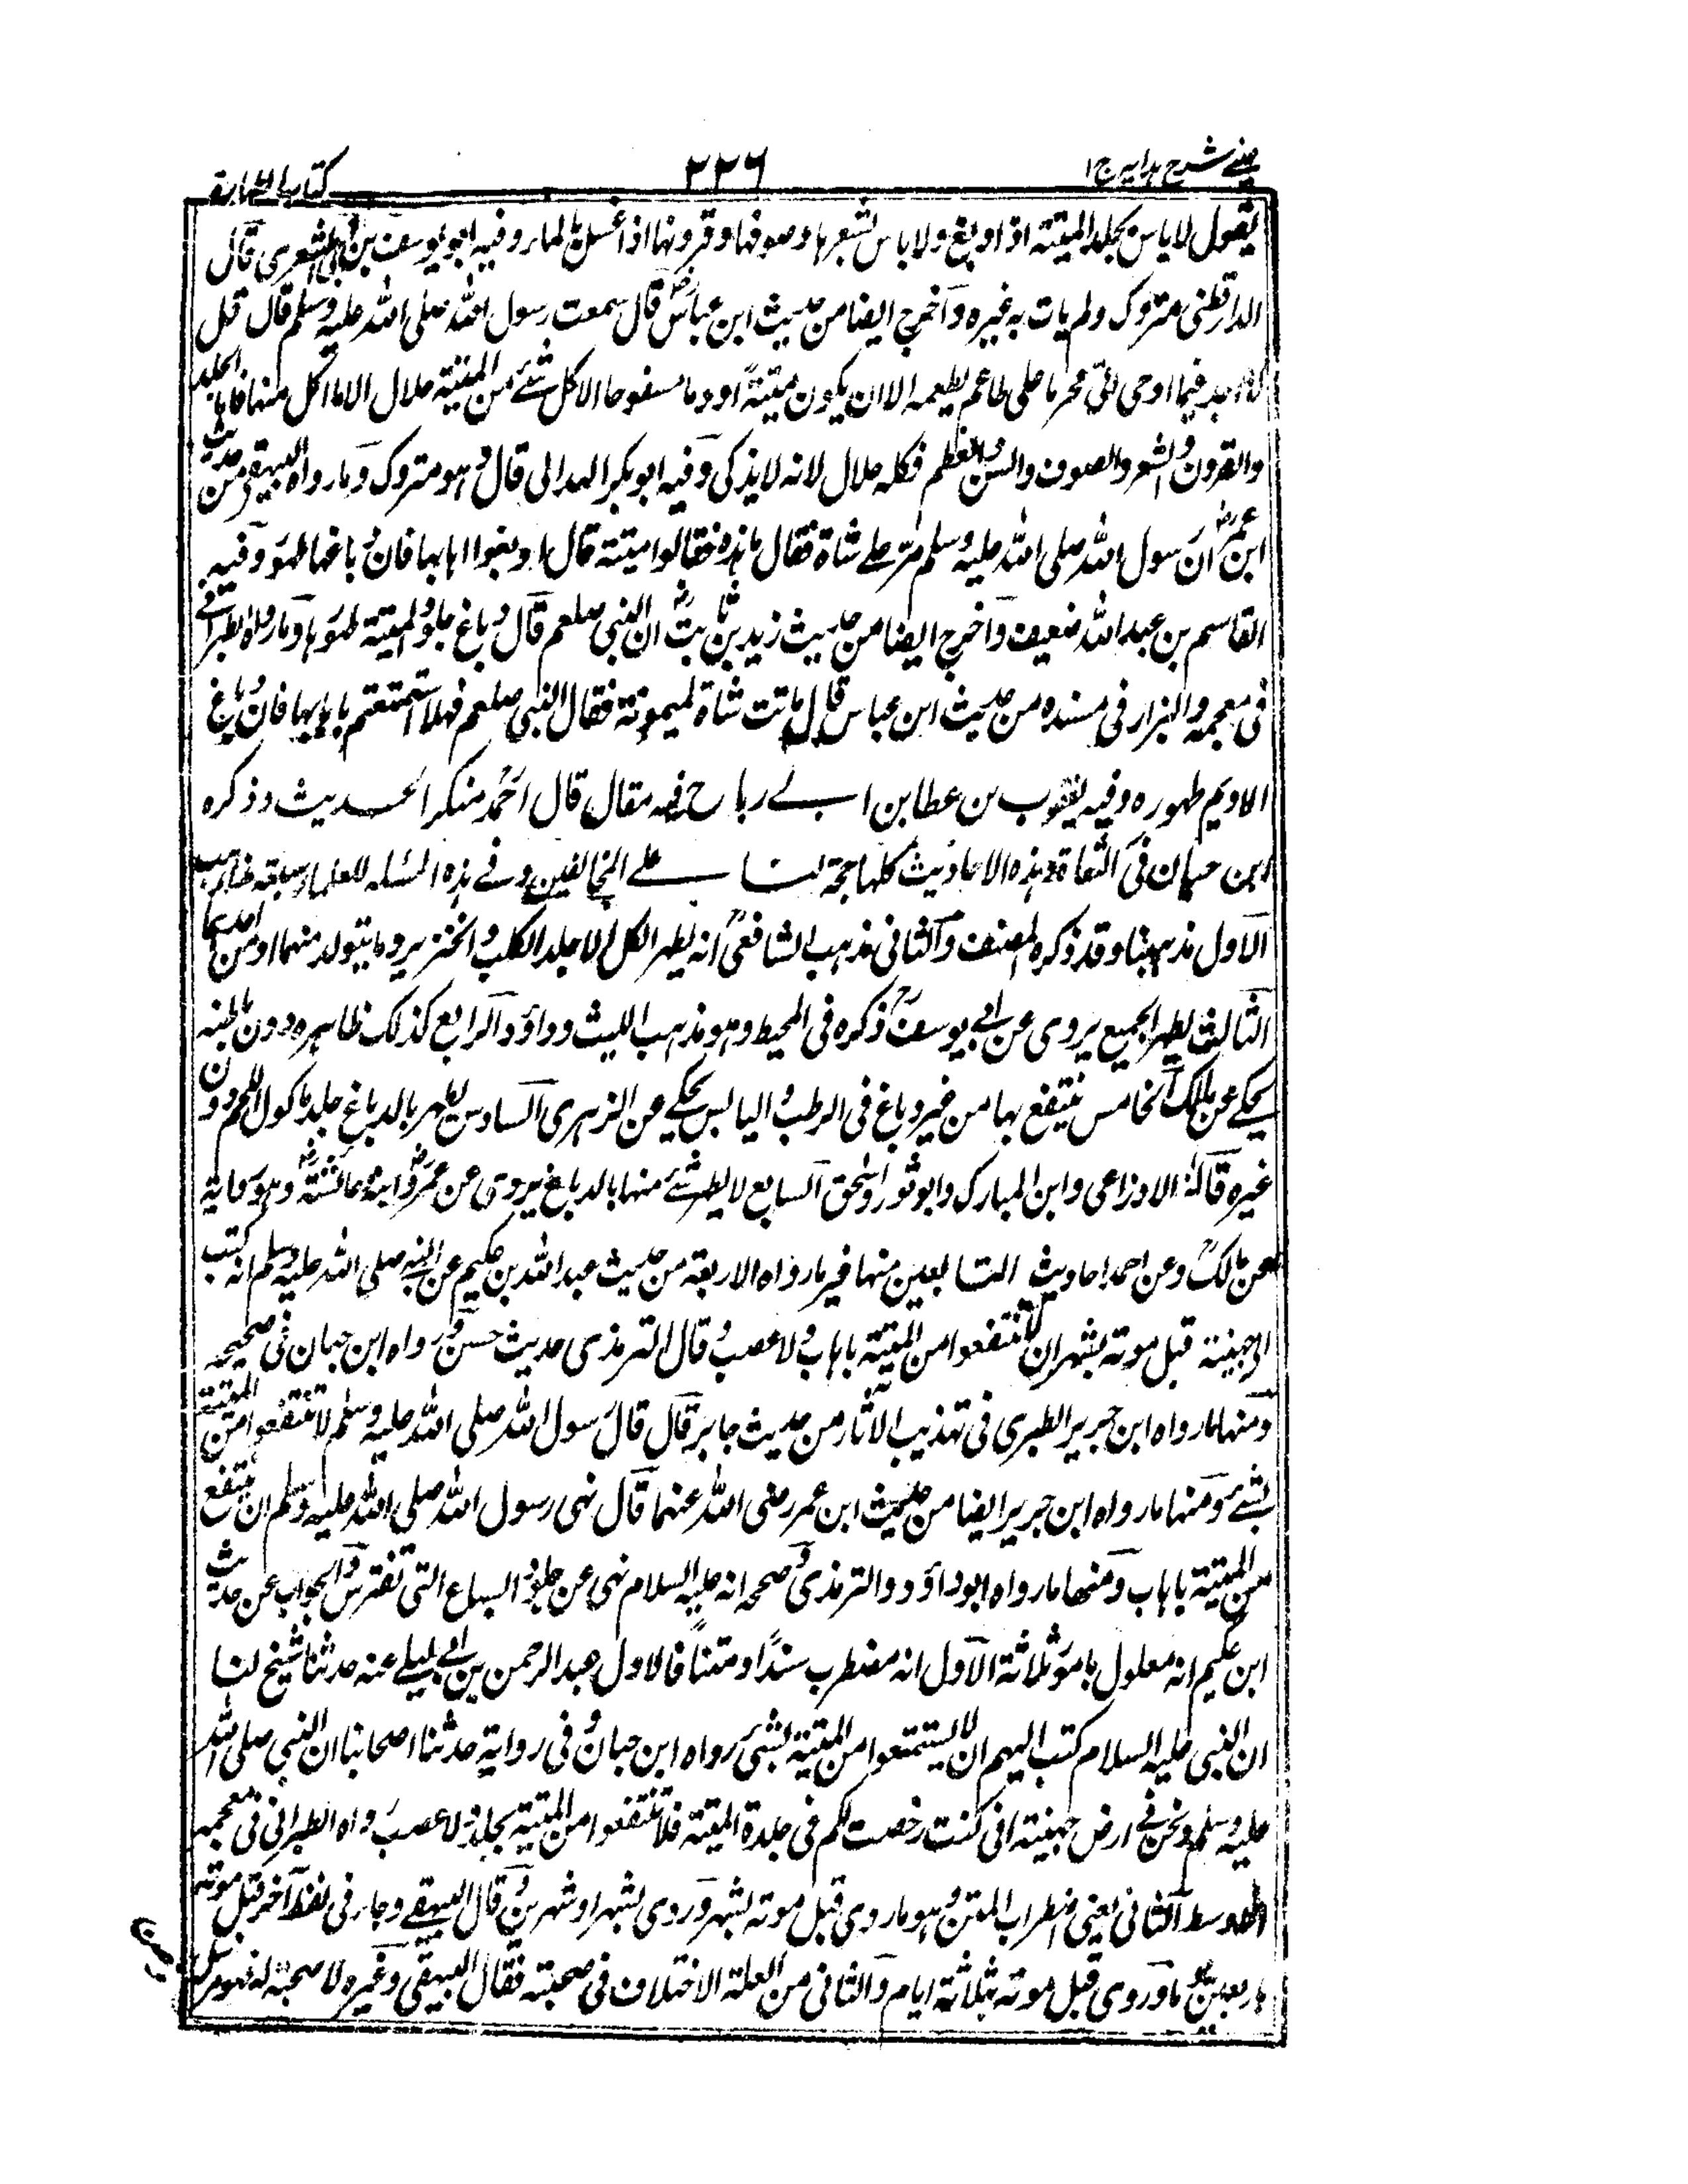 عينى شرح هدايه ج ١
٢٢٦
كتاب الطهارة
يقول لا باس بجلد الميتة اذا دبغ ولا باس بشعرها وصوفها وقرونها اذا غسل بالماء وفيه ابو يوسف بن الشعرى قال
الدارقطنى متروك ولم يات به غيره واخرج ايضا من حديث ابن عباس رض قال سمعت رسول الله صلى الله عليه وسلم قال قل
لا اجد فيما اوحى الىّ محرما على طاعم يطعمه الا ان يكون ميتةً او دما مسفوحا الا كل شئ من الميتة حلال الا ما اكل منها فاما الجلد
والقرون والشعر والصوف والسن والعظم فكله حلال لانه لا يذكى وفيه ابو بكر الهذلى قال وهو متروك وما رواه البيهقى من حديث
ابن عمر رض ان رسول الله صلى الله عليه وسلم مرّ على شاة فقال ما هذه فقالوا ميتة قال ادبغوا اهابها فان دباغها طهور وفيه
القاسم بن عبد الله ضعيف واخرج ايضا من حديث زيد بن ثابت رض ان النبى صلعم قال دباغ جلود الميتة طهورها وما رواه الطبرانى
فى معجمه والبزار فى مسنده من حديث ابن عباس قال ماتت شاة لميمونة فقال النبى صلعم فهلا استمتعتم باهابها فان دباغ
الاديم طهوره وفيه يعقوب بن عطا بن ابى رباح فيه مقال قال احمد منكر الحديث وذكره
ابن حبان فى الثقاة وهذه الاحاديث كلها حجة لنا على المخالفين وفى هذه المسئله للعلماء سبعة مذاهب
الاول مذهبنا وقد ذكره المصنف والثانى مذهب الشافعى رح انه يطهر الكل الا جلد الكلب والخنزير وما يتولد منهما او من احدهما
الثالث يطهر الجميع يروى عن ابى يوسف رح ذكره فى المحيط وهو مذهب الليث وداؤد الرابع كذلك ظاهره دون باطنه
يحكى عن مالك الخامس ينتفع بها من غير دباغ فى الرطب واليابس يحكى عن الزهرى السادس يطهر بالدباغ جلد ماكول اللحم دون
غيره قاله الاوزاعى وابن المبارك وابو ثور واسحق السابع لا يطهر شئ منها بالدباغ يروى عن عمر رض وابنه وعائشة رض وهو رواية
عن مالك رح وعن احمد احاديث التابعين منها فيما رواه الاربعة من حديث عبد الله بن عكيم عن النبى صلى الله عليه وسلم انه كتب
الى جهينة قبل موته بشهر ان لا تنتفعوا من الميتة باهاب ولا عصب وقال الترمذى حديث حسن ورواه ابن حبان فى صحيحه
ومنها ما رواه ابن جرير الطبرى فى تهذيب الآثار من حديث جابر قال قال رسول الله صلى الله عليه وسلم لا تنتفعوا من الميتة
بشئ ومنها ما رواه ابن جرير ايضا من حديث ابن عمر رضى الله عنهما قال نهى رسول الله صلى الله عليه وسلم ان ينتفع
من الميتة باهاب ومنها ما رواه ابو داؤد والترمذى وصححه انه عليه السلام نهى عن جلود السباع التى تفترش والجواب عن حديث
ابن عكيم انه معلول بامور ثلاثة الاول انه مضطرب سنداً ومتناً فالاول عبد الرحمن بن ابى ليلى عنه حدثنا شيخ لنا
ان النبى عليه السلام كتب اليهم ان لا يستمتعوا من الميتة بشئ رواه ابن حبان وفى رواية حدثنا اصحابنا ان النبى صلى الله
عليه وسلم ونحن فى ارض جهينة انى كنت رخصت لكم فى جلدة الميتة فلا تنتفعوا من الميتة بجلد ولا عصب رواه الطبرانى فى معجمه
الاوسط الثانى يعنى اضطراب المتن وهو ما روى قبل موته بشهر وروى بشهر او شهرين وقال البيهقى وجاء فى لفظ آخر قبل موته
باربعين يوما وروى قبل موته بثلاثة ايام والثانى من العلة الاختلاف فى صحبته فقال البيهقى وغيره لا صحبة له فهو مرسل